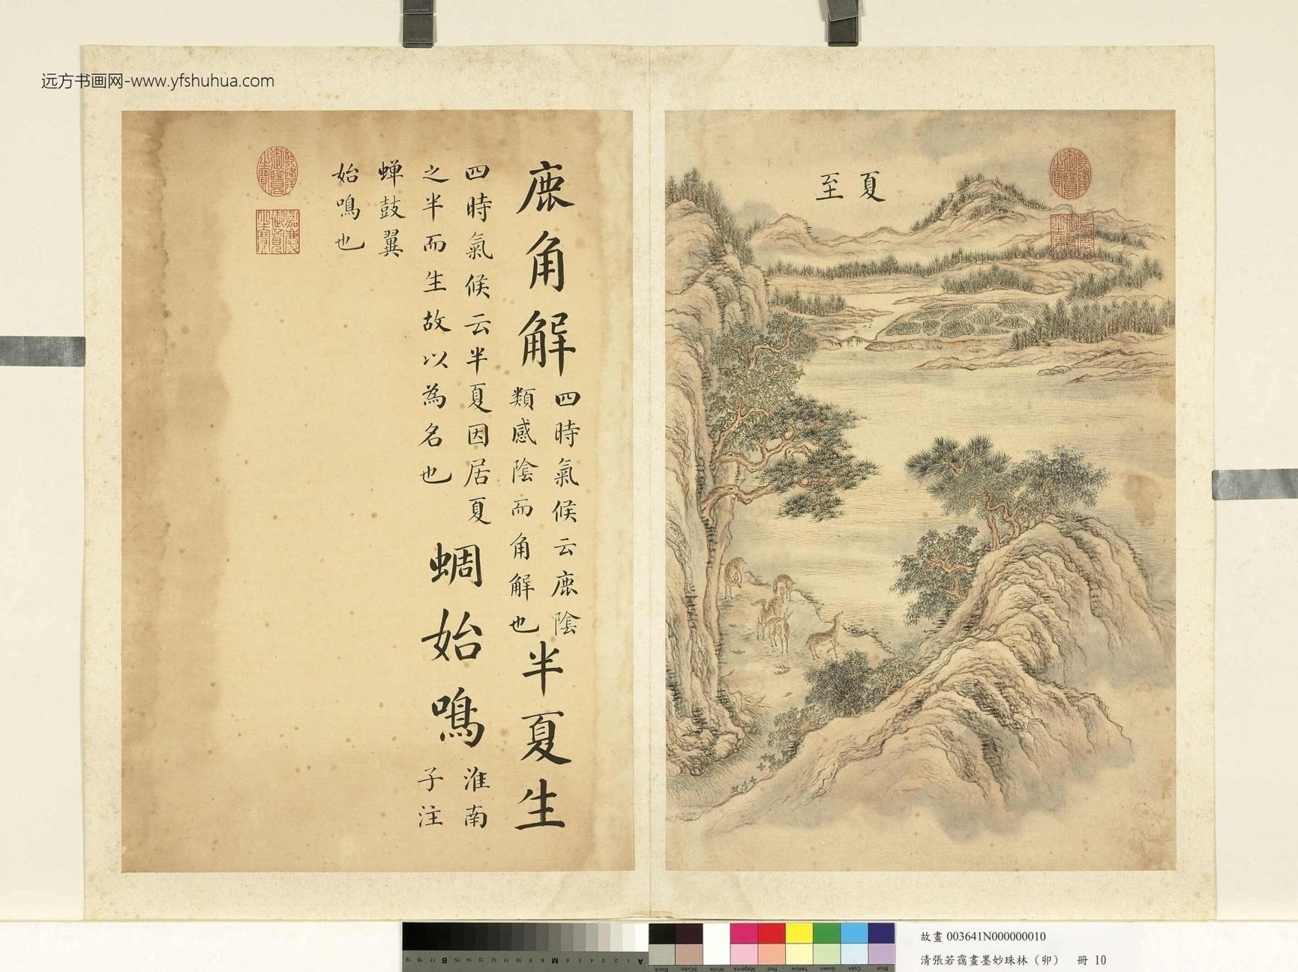 远方书画网-www.yfshuhua.com
夏至
鹿角解
四時氣候云鹿陰
類感陰而角解也
半夏生
四時氣候云半夏因居夏
之半而生故以為名也
蜩始鳴
淮南
子注
蟬鼓翼
始鳴也
故畫 003641N000000010
清張若靄畫墨妙珠林(卯) 冊 10